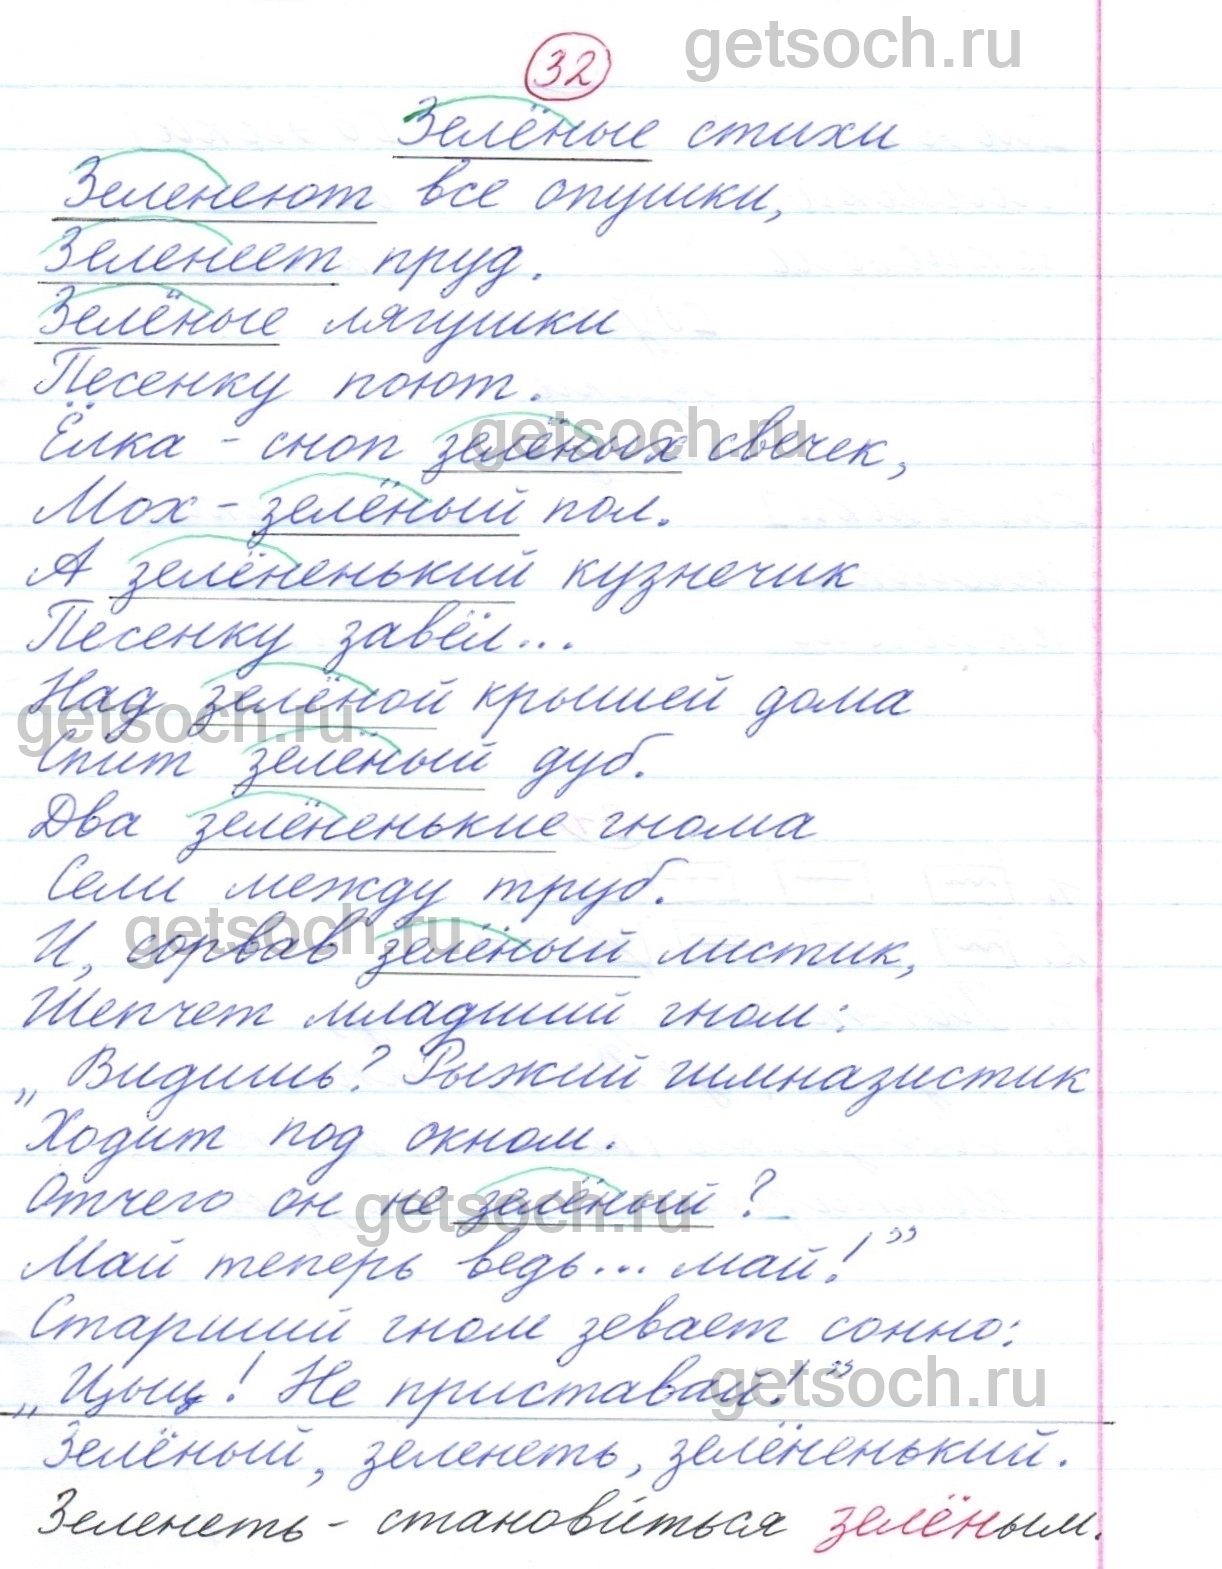 getsoch.ru
32
Зелёные стихи
Зеленеют все опушки,
Зеленеет пруд.
Зелёные лягушки
Песенку поют.
Ёлка - сноп зелёных свечек,
getsoch.ru
Мох - зелёный пол.
А зелёненький кузнечик
Песенку завёл...
Над зелёной крышей дома
getsoch.ru
Спит зелёный дуб.
Два зелёненькие гнома
Сели между труб.
И, сорвав зелёный листик,
getsoch.ru
Шепчет младший гном:
„Видишь? Рыжий гимназистик
Ходит под окном.
Отчего он не зелёный?
getsoch.ru
Май теперь ведь... май!”
Старший гном зевает сонно:
„Цыц! Не приставай!”
getsoch.ru
Зелёный, зеленеть, зелёненький.
Зеленеть - становиться зелёным.